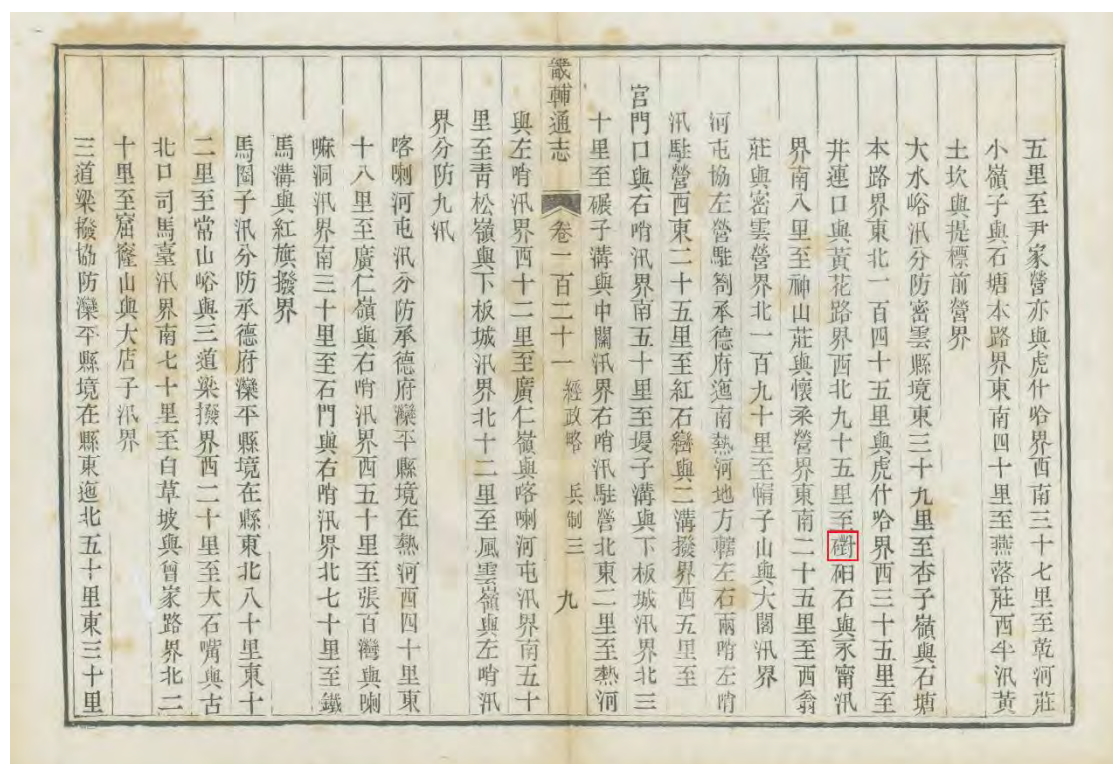 五里至尹家營亦與虎什哈界西南三十七里至乾河莊
小嶺子與石塘本路界東南四十里至燕落莊西半汛黃
土坎與提標前營界
大水峪汛分防密雲縣境東三十九里至杏子嶺與石塘
本路界東北一百四十五里與虎什哈界西三十五里至
井連口與黃花路界西北九十五里至䃏砠石與永甯汛
界南八里至神山莊與懷柔營界東南二十五里至西翁
莊與密雲營界北一百九十里至帽子山與大閣汛界
河屯協左營駐劄承德府迤南熱河地方轄左右兩哨左哨
汛駐營西東二十五里至紅石巒與二溝撥界西五里至
宮門口與右哨汛界南五十里至墁子溝與下板城汛界北三
十里至碾子溝與中關汛界右哨汛駐營北東二里至熱河
畿輔通志 卷一百二十一 經政略 兵制三 九
與左哨汛界西十二里至廣仁嶺與喀喇河屯汛界南五十
里至青松嶺與下板城汛界北十二里至風雲嶺與左哨汛
界分防九汛
喀喇河屯汛分防承德府灤平縣境在熱河西四十里東
十八里至廣仁嶺與右哨汛界西五十里至張百灣與喇
嘛洞汛界南三十里至石門與右哨汛界北七十里至鐵
馬溝與紅旗撥界
馬圈子汛分防承德府灤平縣境在縣東北八十里東十
二里至常山峪與三道梁撥界西二十里至大石嘴與古
北口司馬臺汛界南七十里至白草坡與曾家路界北二
十里至窟窿山與大店子汛界
三道梁撥協防灤平縣境在縣東迤北五十里東三十里